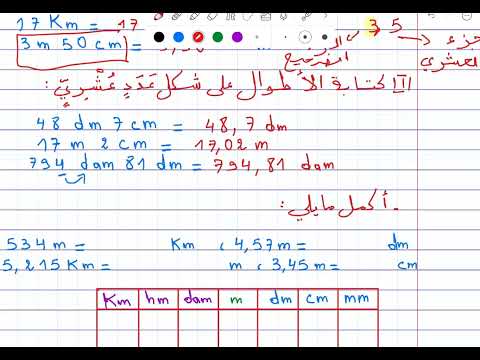 17 Km = 17
3 5
جزء
3 m 50 cm =
العشري
II كتابة الأطوال على شكل عَدَدٍ عُشْرِيٍّ :
48 dm 7 cm = 48,7 dm
17 m 2 cm = 17,02 m
794 dam 81 dm = 794,81 dam
- أكمل مايلي :
534 m = Km ، 4,57 m = dm
5,215 Km = m ، 3,45 m = cm
Km hm dam m dm cm mm